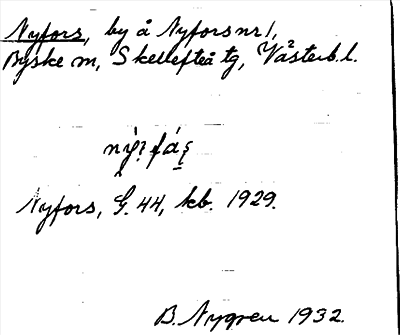 Nyfors, by å Nyfors nr 1,
Byske sn, Skellefteå tg, Västerb. l.
Nyfors, G. 44, kb. 1929.
B. Nygren 1932.